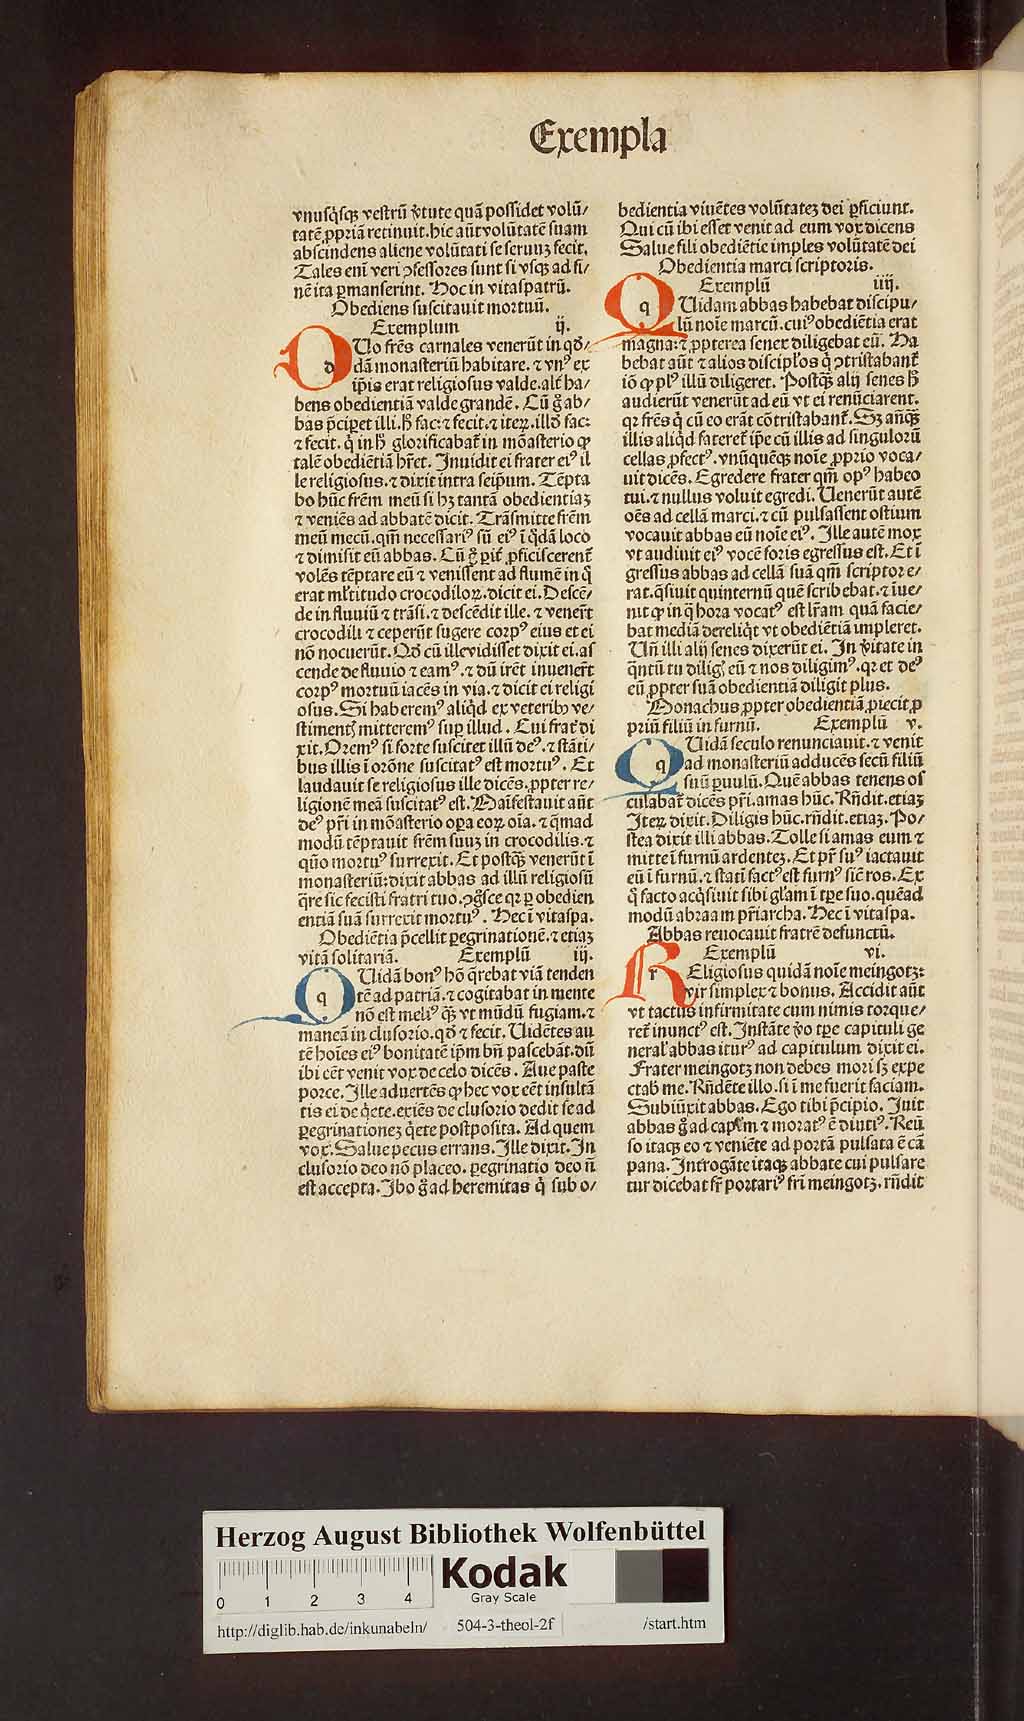 Exempla
vnusq̇sqꝫ vestrū v̇tute quā possidet volū/
tatē ꝓpriā retinuit. hic aūt volūtatē suam
abscindens aliene volūtati se seruuꝫ fecit.
Tales eni veri ꝯfessores sunt si vsqꝫ ad fi/
nē ita ꝑmanserint. Hoc in vitaspatrū.
Obediens suscitauit mortuū.
Exemplum ij.
dUo frēs carnales venerūt in qō/
dā monasteriū habitare. ⁊ vnꝰ ex
ip̄is erat religiosus valde. alt̄ ha/
bens obedientiā valde grandē. Cū g̊ ab/
bas p̄ciꝑet illi. h̄ fac: ⁊ fecit. ⁊ iteꝝ. illō fac:
⁊ fecit. q̇ in h̄ glorificabat̄ in mōasterio ꝙ
talē obediētiā hr̄et. Inuidit ei frater eiꝰ il
le religiosus. ⁊ dixit intra seip̄um. Tēpta
bo hūc frēm meū si hꝫ tantā obedientiaꝫ
⁊ veniēs ad abbatē dicit. Trāsmitte frēm
meū mecū. qm̄ necessariꝰ sū eiꝰ ī q̇dā loco
⁊ dimisit eū abbas. Cū g̊ ꝑit̄ ꝓficiscerent̄
volēs tēptare eū ⁊ venissent ad flumē in q̊
erat ml̄titudo crocodiloꝝ. dicit ei. Descē/
de in fluuiū ⁊ trāsi. ⁊ descēdit ille. ⁊ venert̄
crocodili ⁊ ceperūt sugere corpꝰ eius et ei
nō nocuerūt. Qō cū ille vidisset dixit ei. as
cende de fluuio ⁊ eamꝰ. ⁊ dū irēt inuenert̄
corpꝰ mortuū iacēs in via. ⁊ dicit ei religi
osus. Si haberemꝰ aliqd ex veteribꝰ ve/
stimentꝭ mitteremꝰ suꝑ illud. Cui frat̄ di
xit. Oremꝰ si forte suscitet illū deꝰ. ⁊ stāti/
bus illis ī orōne suscitatꝰ est mortuꝰ. Et
laudauit se religiosus ille dicēs. ꝓpter re/
ligionē meā suscitatꝰ est. Maīfestauit aūt
deꝰ pr̄i in mōasterio oꝑa eoꝝ oīa. ⁊ q̄mad
modū tēptauit frēm suuꝫ in crocodilis. ⁊
quō mortuꝰ surrexit. Et postqꝫ venerūt ī
monasteriū: dixit abbas ad illū religiosū
q̄re sic fecisti fratri tuo. ꝯg̊sce qꝛ ꝑ obedien
entiā suā surrexit mortuꝰ. Hec ī vitaspa.
Obediētia p̄cellit ꝑegrinationē. ⁊ etiaꝫ
vitā solitariā. Exemplū iij.
qUidā bonꝰ hō q̄rebat viā tenden
tē ad patriā. ⁊ cogitabat in mente
nō est meliꝰ qꝫ vt mūdū fugiam. ⁊
maneā in clusorio. qō ⁊ fecit. Uidētes au
tē hoīes eiꝰ bonitatē ip̄m bn̄ pascebāt. dū
ibi eēt venit vox de celo dicēs. Aue paste
porce. Ille aduertēs ꝙ hec vox eēt insultā
tis ei de q̇ete. exiēs de clusorio dedit se ad
ꝑegrinationeꝫ q̇ete postposita. Ad quem
vox. Salue pecus errans. Ille dixit. In
clusorio deo nō placeo. ꝑegrinatio deo n̄
est accepta. Ibo g̊ ad heremitas q̇ sub o/
bedientia viuētes volūtateꝫ dei ꝑficiunt.
Qui cū ibi esset venit ad eum vox dicens
Salue fili obediētie imples volūtatē dei
Obedientia marci scriptoris.
Exemplū iiij.
qUidam abbas habebat discipu/
lū noīe marcū. cuiꝰ obediētia erat
magna: ⁊ ꝓpterea senex diligebat eū. Ha
bebat aūt ⁊ alios discipl̄os q̇ ꝯtristabant̄
iō ꝙ plꝰ illū diligeret. Postqꝫ alij senes h̄
audierūt venerūt ad eū vt ei renūciarent.
qꝛ frēs q̇ cū eo erāt cōtristabant̄. Sꝫ anqꝫ
illis aliqd fateret̄ ip̄e cū illis ad singulorū
cellas ꝓfectꝰ. vnūquēqꝫ noīe ꝓprio voca/
uit dicēs. Egredere frater qm̄ opꝰ habeo
tui. ⁊ nullus voluit egredi. Uenerūt autē
oēs ad cellā marci. ⁊ cū pulsassent ostium
vocauit abbas eū noīe eiꝰ. Ille autē mox
vt audiuit eiꝰ vocē foris egressus est. Et ī
gressus abbas ad cellā suā qm̄ scriptor e/
rat. q̄siuit quinternū quē scribebat. ⁊ īue/
nit ꝙ in q̊ hora vocatꝰ est lr̄am quā facie/
bat mediā dereliq̇t vt obediētiā impleret.
Un̄ illi alij senes dixerūt ei. In v̇itate in
q̄ntū tu diligꝭ eū ⁊ nos diligimꝰ. qꝛ et deꝰ
eū ꝓpter suā obedientiā diligit plus.
Monachus ꝓpter obedientiā ꝓiecit ꝓ
priū filiū in furnū. Exemplū v.
qUidā seculo renunciauit. ⁊ venit
ad monasteriū adducēs secū filiū
suū ꝑuulū. Quē abbas tenens os
culabat̄ dicēs pr̄i. amas hūc. Rn̄dit. etiaꝫ
Iteꝝ dixit. Diligis hūc. rn̄dit. etiaꝫ. Po/
stea dixit illi abbas. Tolle si amas eum ⁊
mitte ī furnū ardenteꝫ. Et pr̄ suꝰ iactauit
eū ī furnū. ⁊ statī factꝰ est furnꝰ sic̄ ros. Ex
q̊ facto acq̇siuit sibi gl̄am ī tꝑe suo. quēad
modū abraam pr̄iarcha. Hec ī vitaspa.
Abbas reuocauit fratrē defunctū.
Exemplū vi.
rEligiosus quidā noīe meingotꝫ:
vir simplex ⁊ bonus. Accidit aūt
vt tactus infirmitate cum nimis torque/
ret̄ inunctꝰ est. Instāte v̊o tꝑe capituli ge
neral̓ abbas iturꝰ ad capitulum dixit ei.
Frater meingotꝫ non debes mori sꝫ expe
ctab me. Rn̄dēte illo. si ī me fuerit faciam.
Subiūxit abbas. Ego tibi p̄cipio. Iuit
abbas g̊ ad capl̄m ⁊ moratꝰ ē diutiꝰ. Reū
so itaqꝫ eo ⁊ veniēte ad portā pulsata ē cā
pana. Introgāte itaqꝫ abbate cui pulsare
tur dicebat fr̄ portariꝰ fr̄i meingotꝫ. rn̄dit
Herzog August Bibliothek Wolfenbüttel
0 1 2 3 4
Kodak
Gray Scale
http://diglib.hab.de/inkunabeln/ 504-3-theol-2f /start.htm